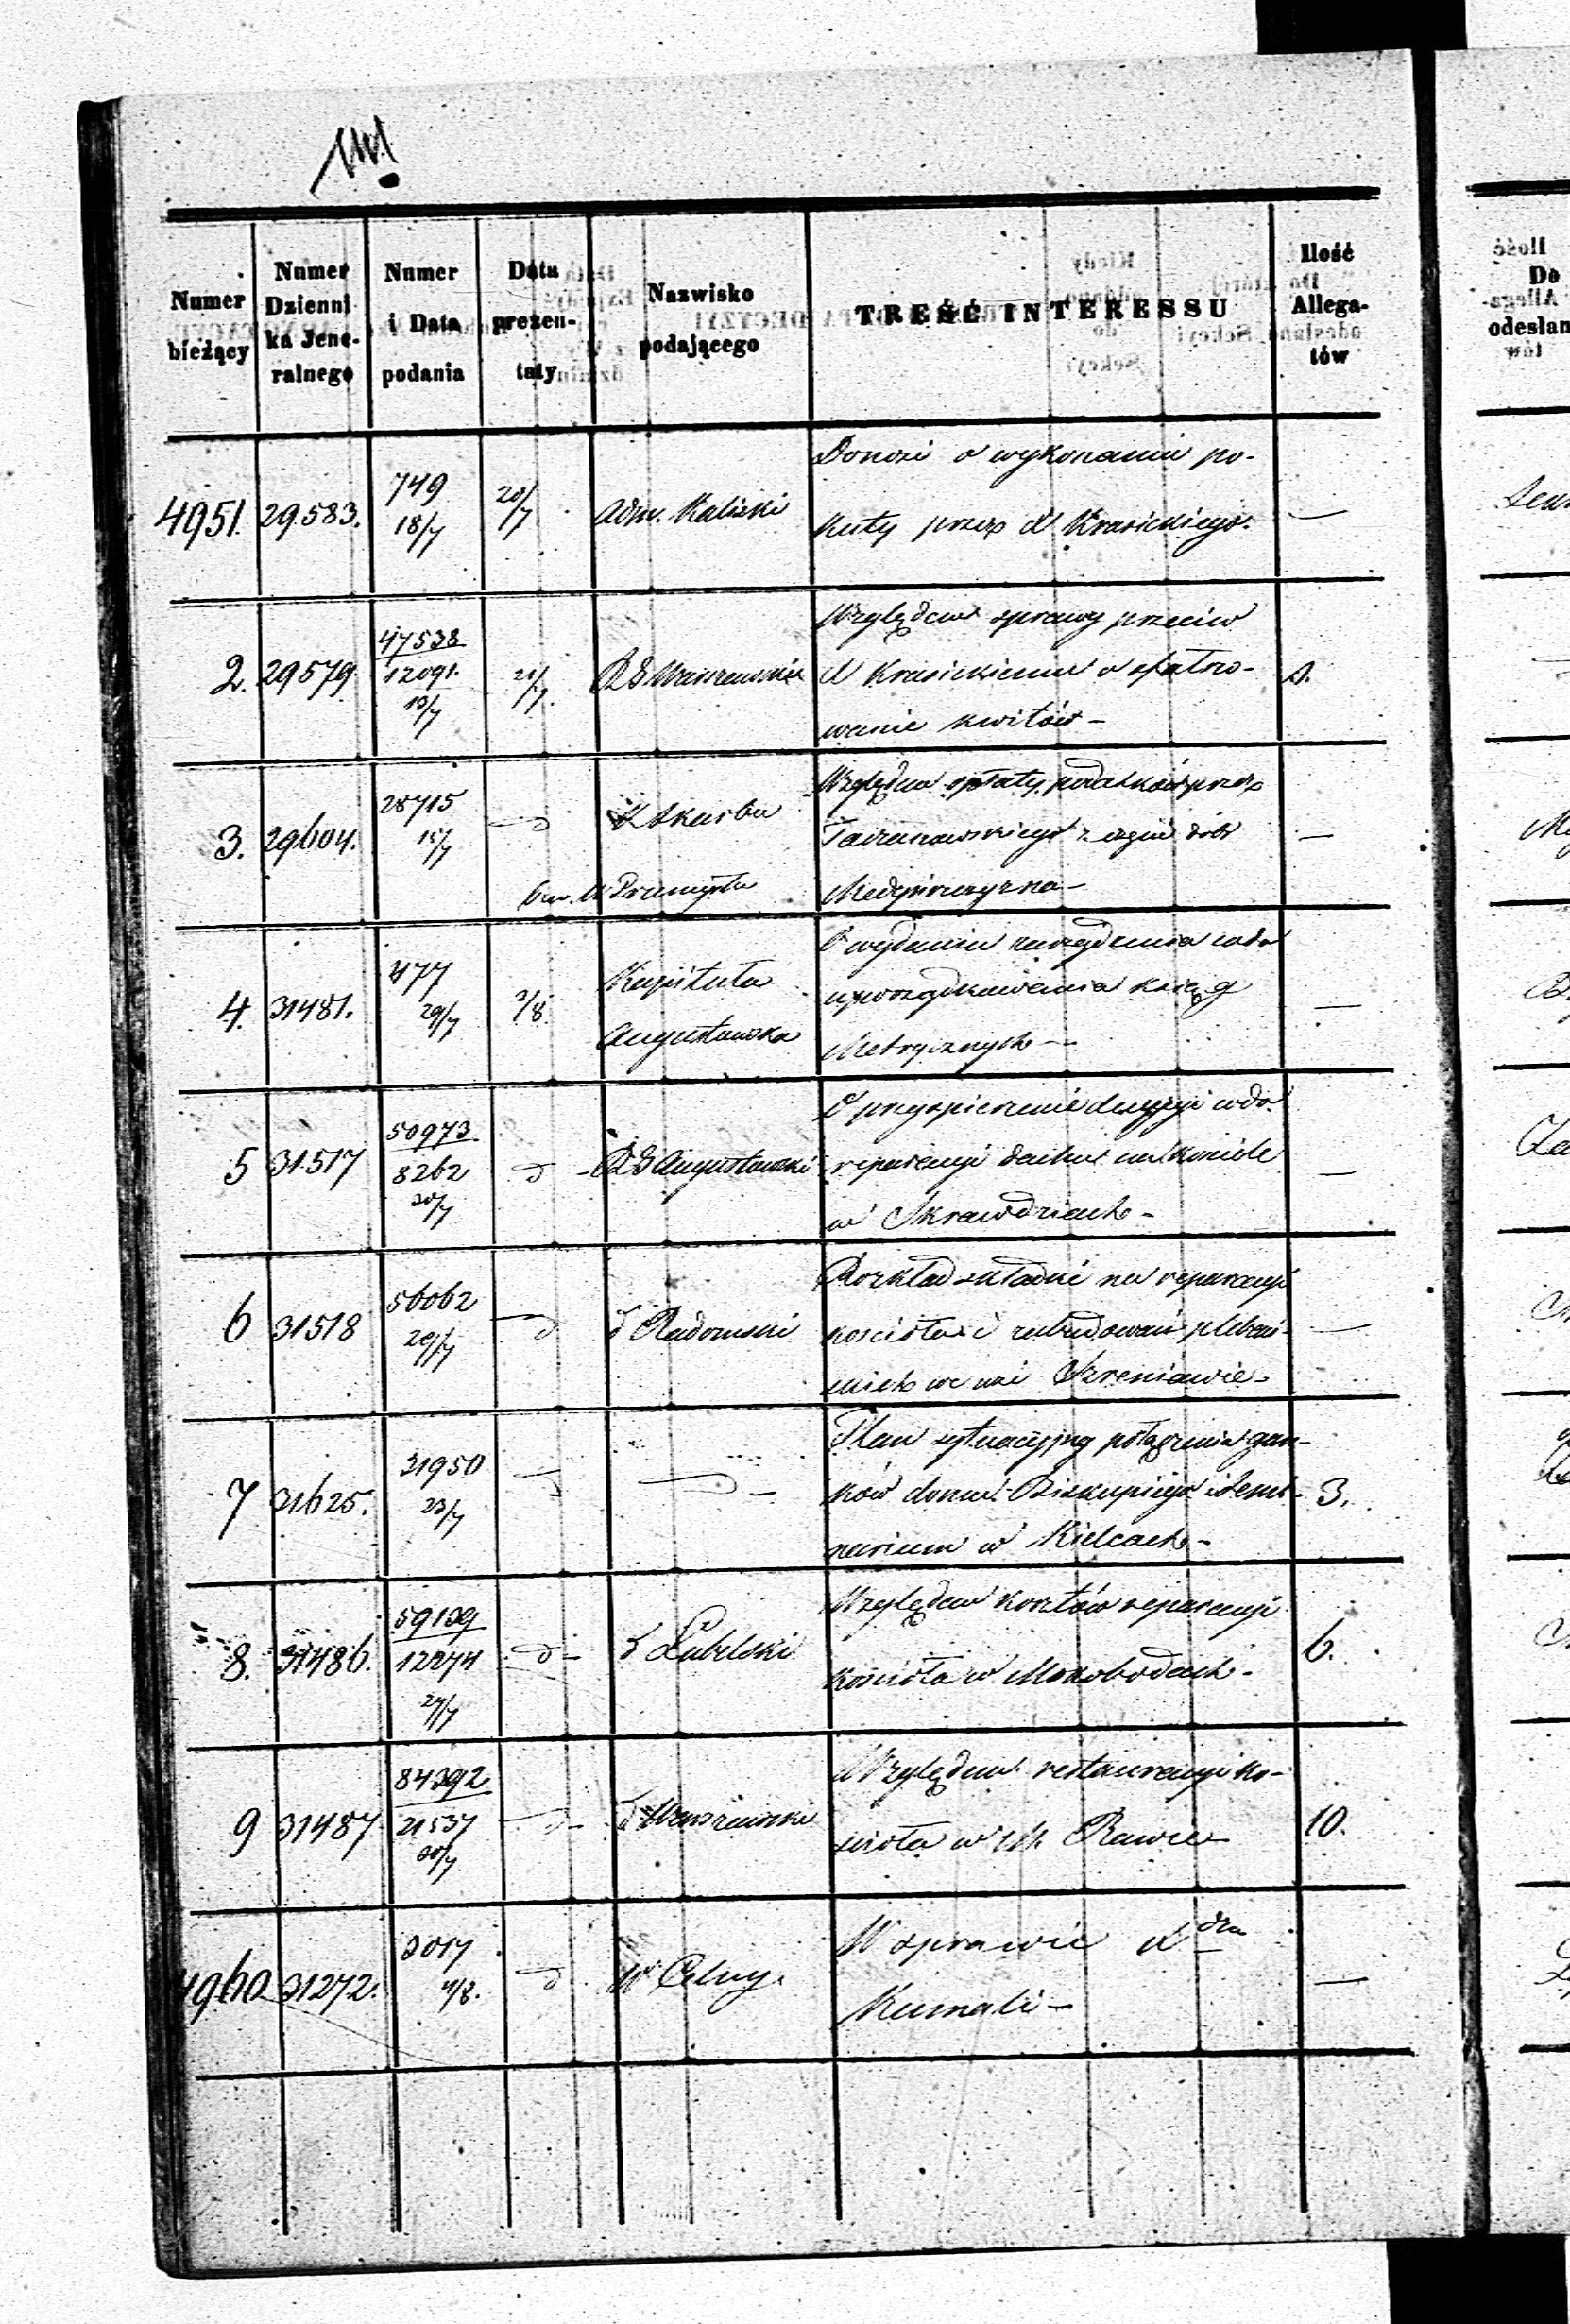 Numer bieżący
Numer Dzienni ka Jene- ralnego
Numer i Data podania
Data prezen- taty
Nazwisko podającego
TREŚĆ INTERESSU
Ilość Allega- tów
4951. 29583. 749 18/7 20/7 Adm. Kaliski
Donosi o wykonaniu po-
kuty przez Krasickiego. —
2. 29579 47538 12091. 21/7
Względem sprawy przeciw
Krasickiemu o
kwitów —
3. 29604. 28715 15/7 Skarbu
Względem opłaty podatków przez
z dóbr
4. 31481. 477 29/7 3/8 Kapituła Augustowska
O wydanie rozrządzenia
uporządkowania ksiąg
Metrycznych —
5 31517 50973 8262 30/7 d RG Augustowski
O przyspieszenie decyzyi
reparacyi dachu na kościele
w Skrawdziach —
6 31518 56062 29/7 d d Radomski
Rozkład składki na reparacyę
kościoła i zabudowań plebań-
skich we wsi Szreniawie —
7 31625. 31950 23/7
Plan sytuacyjny połączenia gan-
ków domu Biskupiego i Semi- 3.
narium w Kielcach —
8. 31486. 59139 12274 27/7 d d Lubelski
Względem kosztów reparacyi
kościoła w Mokobodach — 6.
9 31487 84392 21537 30/7 d Warszawski
Względem restauracyi ko-
ścioła w M. Rawie — 10.
4960 31272. 3017 4/8. d
W sprawie Xdza
Kumali —
Ilość
Do
odesłan